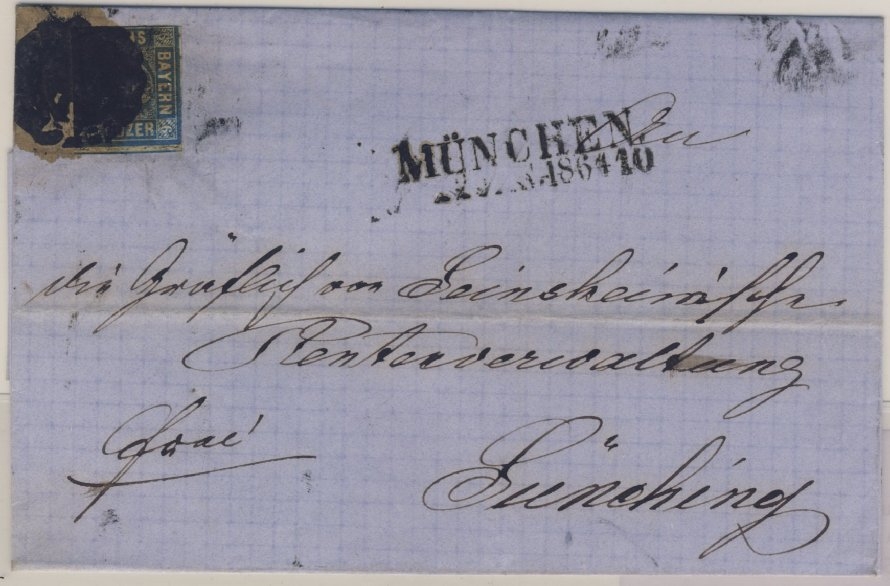 BAYERN
MÜNCHEN
1864 10
An
die Gräflich von Seinsheimische
Rentenverwaltung
frei
Sünching